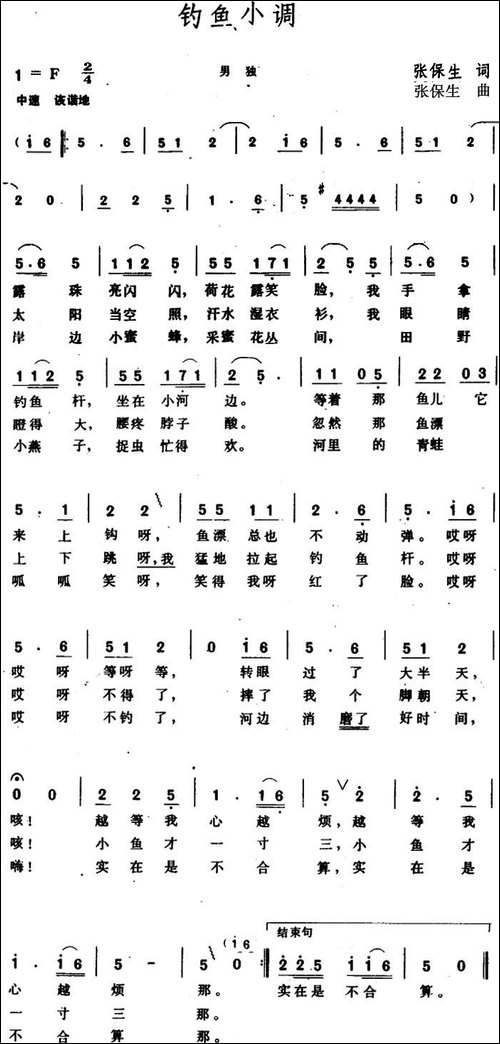 钓鱼小调
1=F 2/4 男独 张保生 词
中速 诙谐地 张保生 曲
( i 6 5 . 6 5 5 1 2 0 i 6 5 . 6 5 5 1
2 0 2 2 5 1 . 6 5 #4 4 4 4 5 0 )
5 . 6 5 1 1 2 5 5 5 1 7 1 2 5 5 5 . 6 5
露 珠 亮闪 闪, 荷花 露笑 脸, 我 手 拿
太 阳 当空 照, 汗水 湿衣 衫, 我 眼 睛
岸 边 小蜜 蜂, 采蜜 花丛 间, 田 野
1 1 2 5 5 5 1 7 1 2 5 . 1 1 0 5 2 2 0 3
钓鱼 杆, 坐在 小河 边。 等着 那 鱼儿 它
瞪得 大, 腰疼 脖子 酸。 忽然 那 鱼漂
小燕 子, 捉虫 忙得 欢。 河里 的 青蛙
5 . 1 2 2 5 5 1 1 2 . 6 5 . i 6
来 上 钩 呀, 鱼漂 总也 不 动 弹。 哎呀
上 下 跳 呀,我 猛地 拉起 钓 鱼 杆。 哎呀
呱 呱 笑 呀, 笑得 我呀 红 了 脸。 哎呀
5 . 6 5 1 2 0 i 6 5 . 6 5 1 2
哎 呀 等呀 等, 转眼 过 了 大半 天,
哎 呀 不得 了, 摔了 我 个 脚朝 天,
哎 呀 不钓 了, 河边 消 磨了 好时 间,
0 0 2 2 5 1 . i 6 5 2 2 . 5
咳! 越 等我 心 越 烦, 越 等我
咳! 小 鱼才 一 寸 三, 小 鱼才
嗨! 实 在是 不 合 算, 实 在是
i . i 6 5 - 5 0 ( i 6 结束句 2 2 5 i i 6 5 0
心 越 烦 那。 实在是 不合 算。
一 寸 三 那。
不 合 算 那。